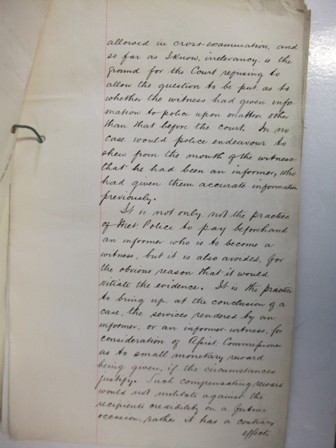 allowed in cross-examination, and
so far as I know, irrelevancy is the
ground for the Court refusing to
allow the question to be put as to
whether the witness had given info
mation to police upon matters other
than that before the court. In no
case would police endeavour to
shew from the mouth of the witness
that he had been an informer, who
had given them accurate information
previously.
It is not only not the practice
of Police to pay beforehand
an informer who is to become a
witness, but it is also avoided, for
the obvious reason that it would
vitiate the evidence. It is the practice
to bring up at the conclusion of a
case, the services rendered by an
informer, or an informer-witness, for
consideration of Commissioner
as to small monetary reward
being given, if the circumstances
justify. Such compensating reward
would not militate against the
recipients credibility on a future
occasion, rather it has a contrary
effect.